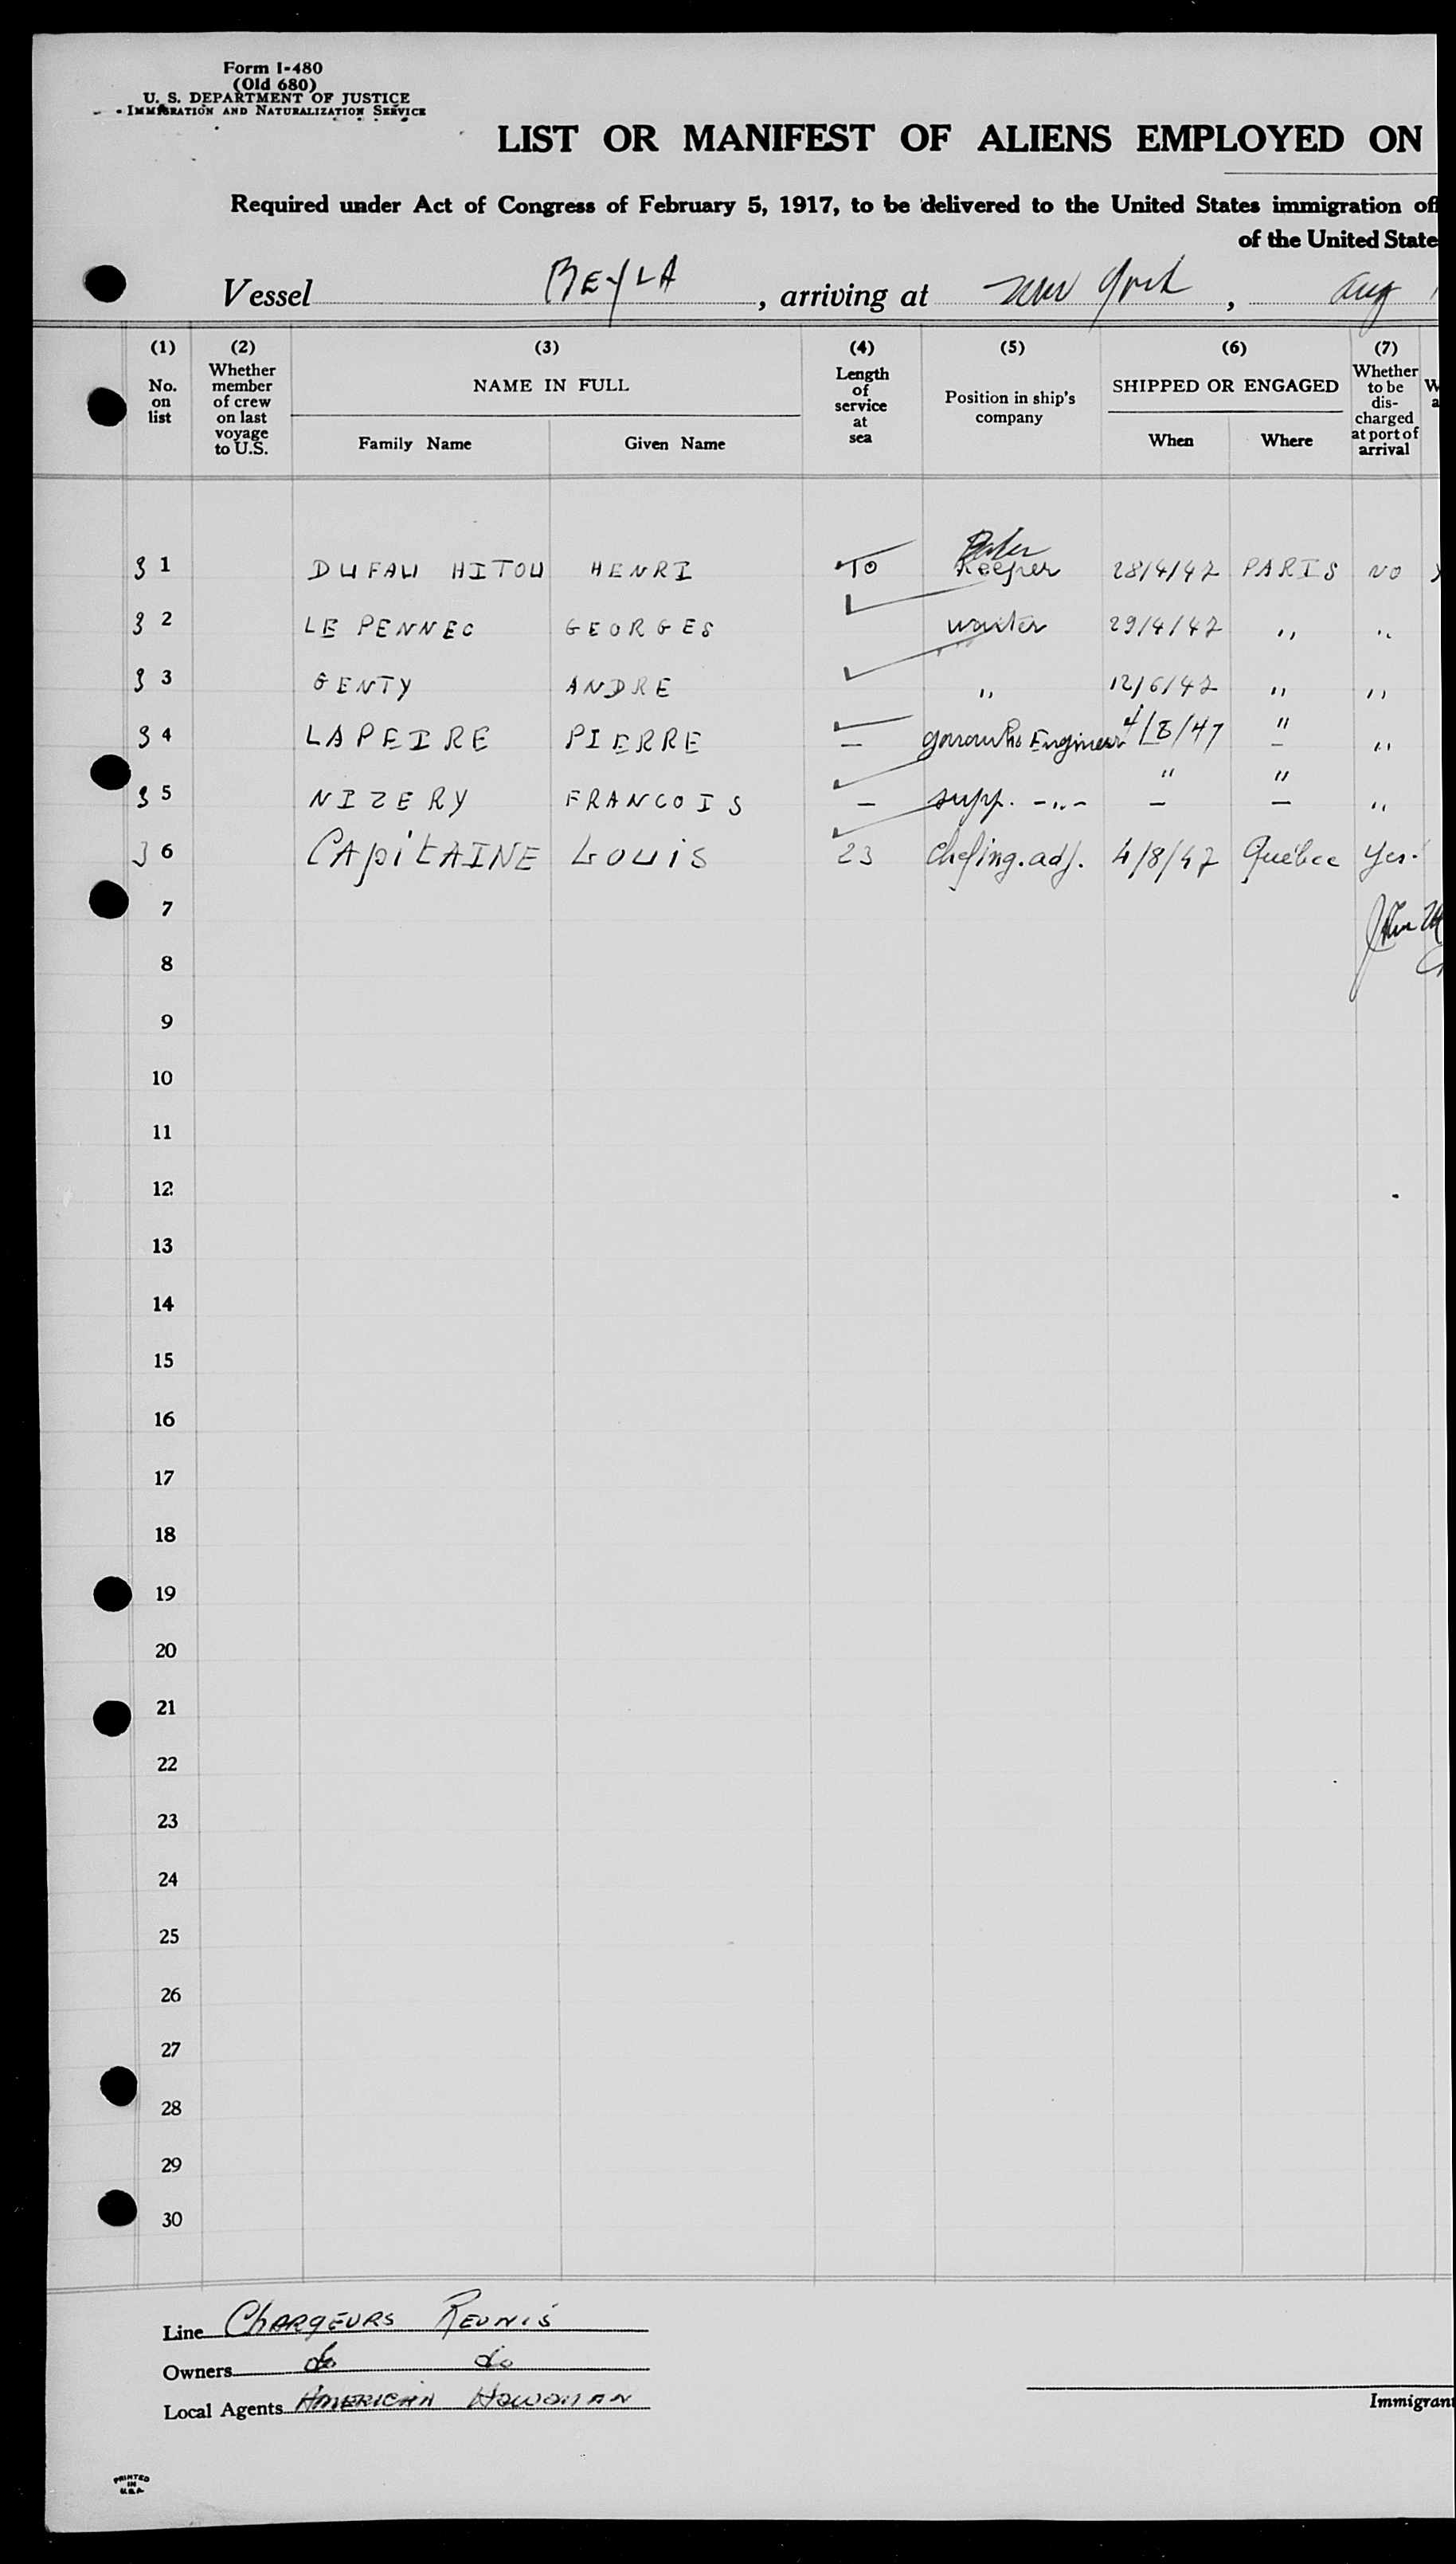 Form I-480
(Old 680)
U. S. DEPARTMENT OF JUSTICE
IMMIGRATION AND NATURALIZATION SERVICE
LIST OR MANIFEST OF ALIENS EMPLOYED ON
Required under Act of Congress of February 5, 1917, to be delivered to the United States immigration of
of the United State
Vessel BEYLA, arriving at New York, Aug
(1) (2) (3) (4) (5) (6) (7)
No. on list
Whether member of crew on last voyage to U.S.
NAME IN FULL
Family Name Given Name
Length of service at sea
Position in ship's company
SHIPPED OR ENGAGED
When Where
Whether to be discharged at port of arrival
31 DUFAU HITOU HENRI Keeper 28/4/47 PARIS NO
32 LE PENNEC GEORGES waiter 29/4/47 ,, ,,
33 GENTY ANDRE ,, 12/6/47 ,, ,,
34 LAPEIRE PIERRE – Engineer 4/8/47 " ,,
35 NIZERY FRANCOIS – supp. -,,- " " ,,
36 CApitAINE Louis 23 ch ing. adj. 4/8/47 Québec Yes.
7
8
9
10
11
12
13
14
15
16
17
18
19
20
21
22
23
24
25
26
27
28
29
30
Line CHARGEURS REUNIS
Owners do do
Local Agents AMERICAN
Immigrant
PRINTED
IN
U.S.A.